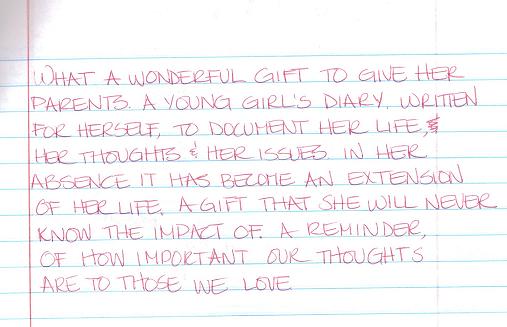 WHAT A WONDERFUL GIFT TO GIVE HER
PARENTS. A YOUNG GIRL'S DIARY, WRITTEN
FOR HERSELF, TO DOCUMENT HER LIFE, &
HER THOUGHTS & HER ISSUES. IN HER
ABSENCE IT HAS BECOME AN EXTENSION
OF HER LIFE. A GIFT THAT SHE WILL NEVER
KNOW THE IMPACT OF. A REMINDER,
OF HOW IMPORTANT OUR THOUGHTS
ARE TO THOSE WE LOVE